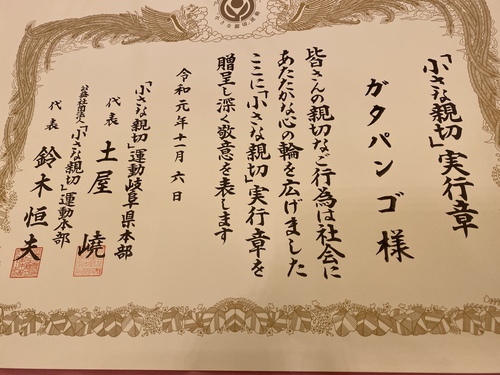 「小さな親切」実行章
ガタパンゴ様
皆さんの親切なご行為は社会に
あたたかな心の輪を広げました
ここに「小さな親切」実行章を
贈呈し深く敬意を表します
令和元年十一月六日
「小さな親切」運動岐阜県本部
代表 土屋 嶢
公益社団法人「小さな親切」運動本部
代表 鈴木恒夫